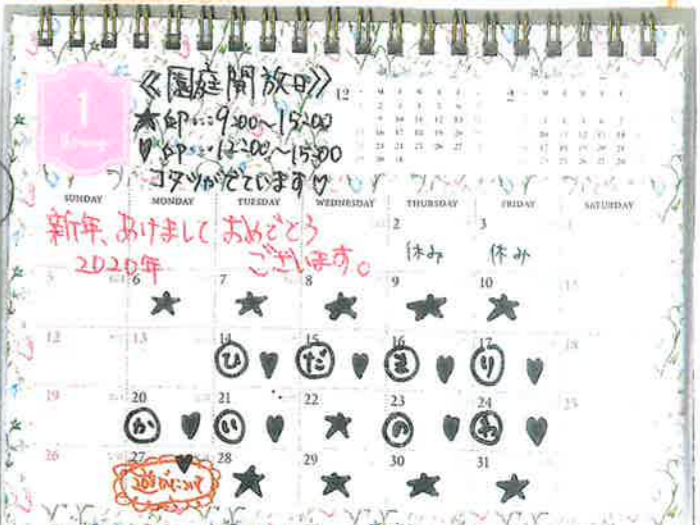 1
≪園庭開放日≫
★印…9:00~15:00
♥印…12:00~15:00
コタツがでています♡
12
SUNDAY MONDAY TUESDAY WEDNESDAY THURSDAY FRIDAY SATURDAY
新年、あけまして おめでとう
2020年 ございます。
2 3
休み 休み
5 6 7 8 9 10
★ ★ ★ ★ ★
12 13 14 15 16 17 18
ひ ♥ だ ♥ ま ♥ り ♥
19 20 21 22 23 24 25
か ♥ い ♥ ★ の ♥ ♥
26 27 28 29 30 31
♥ ★ ★ ★ ★